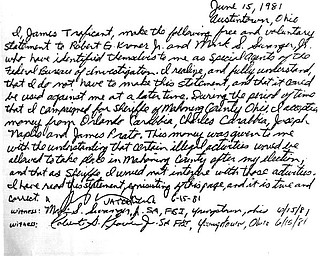 June 15, 1981
Austintown, Ohio
I, James Traficant, make the following free and voluntary
statement to Robert G. Kroner Jr. and Mark S. Swanger, Jr.
who have identified themselves to me as Special Agents of the
Federal Bureau of Investigation. I realize, and fully understand
that I do not have to make this statement, and that it could
be used against me at a later time. During the period of time
that I campaigned for Sheriff of Mahoning County Ohio, I accepted
money from Orlando Carabbia, Charles Carabbia, Joseph
Naples and James Prato. This money was given to me
with the understanding that certain illegal activities would be
allowed to take place in Mahoning County after my election,
and that as Sheriff I would not interfere with those activities.
I have read this statement consisting of this page, and it is true and
correct. 6-15-81
witness: SA, FBI, Youngstown, Ohio 6/15/81
witness: SA FBI, Youngstown, Ohio 6/15/81